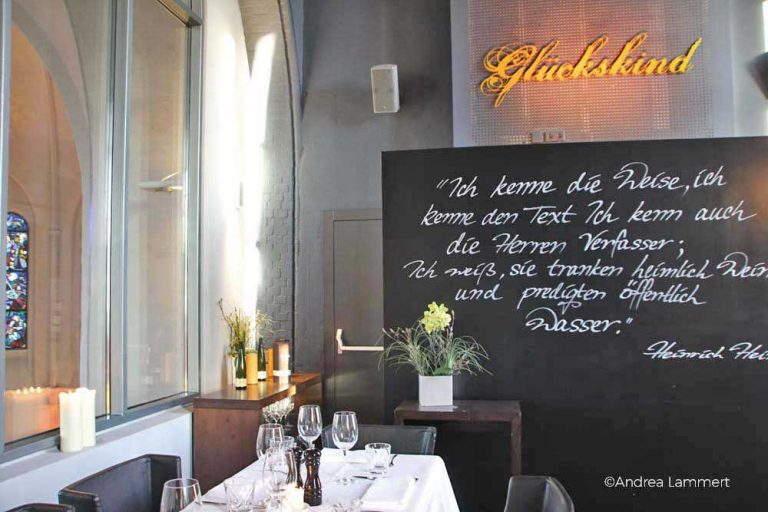 Glückskind
"Ich kenne die Weise, ich
kenne den Text Ich kenn auch
die Herren Verfasser;
Ich weiß, sie tranken heimlich Wein
und predigten öffentlich
Wasser."
Heinrich Hei
©Andrea Lammert